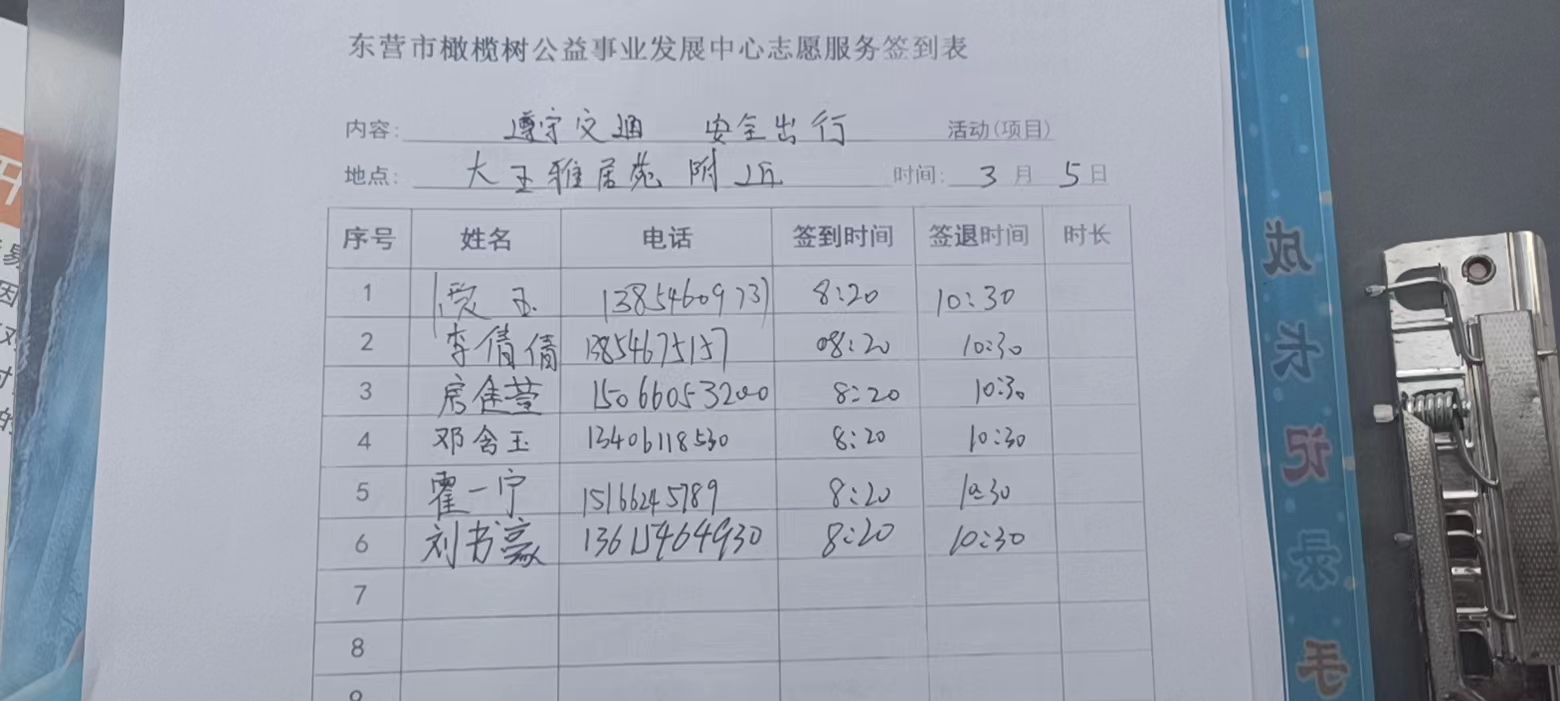 东营市橄榄树公益事业发展中心志愿服务签到表
内容: 遵守交通 安全出行 活动(项目)
地点: 大王雅居苑 附近 时间: 3 月 5 日
序号 姓名 电话 签到时间 签退时间 时长
1 贾玉 13854609737 8:20 10:30
2 李倩倩 13854675157 08:20 10:30
3 房佳莹 15066053200 8:20 10:30
4 邓含玉 13406118530 8:20 10:30
5 霍一宁 15166245789 8:20 10:30
6 刘书豪 13615464930 8:20 10:30
7
8
9
成长记录手